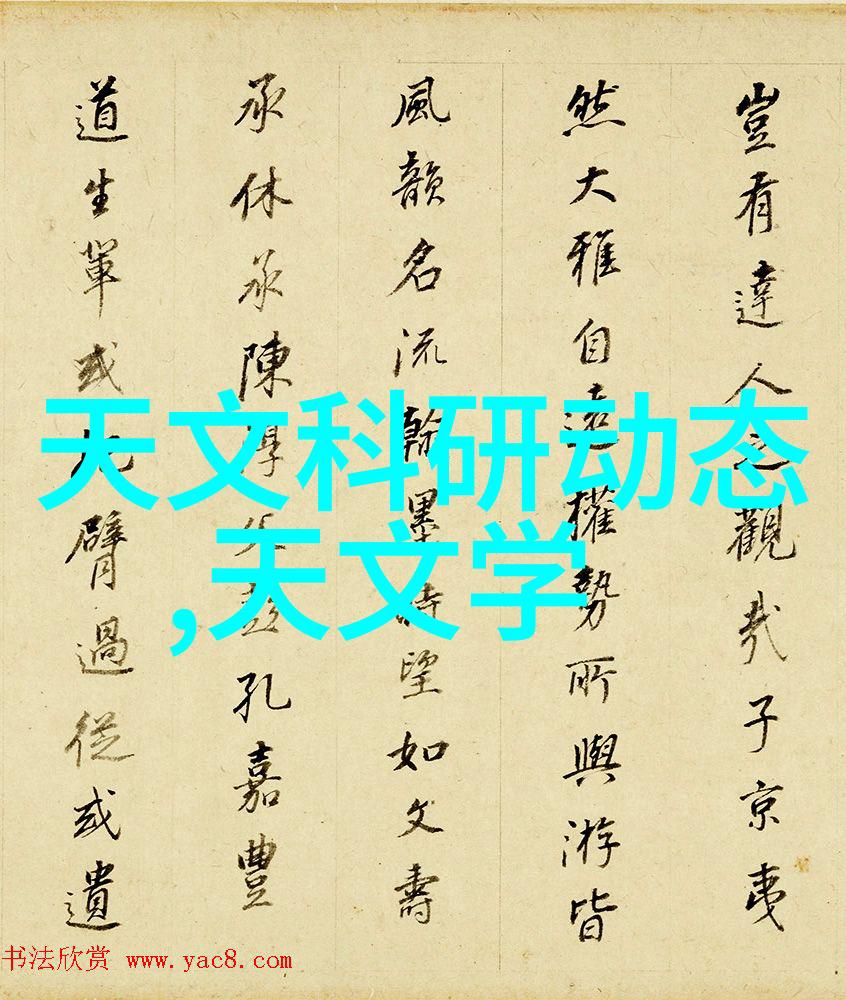 豈有達人之觀哉子京夷
然大雅自遠權勢所與游皆
風韻名流翰墨時望如文壽
承休承陳淳父彭孔嘉豐
道生輩或把臂過從或遺
天文科研动态
,天文学
书法欣赏 www.yac8.com